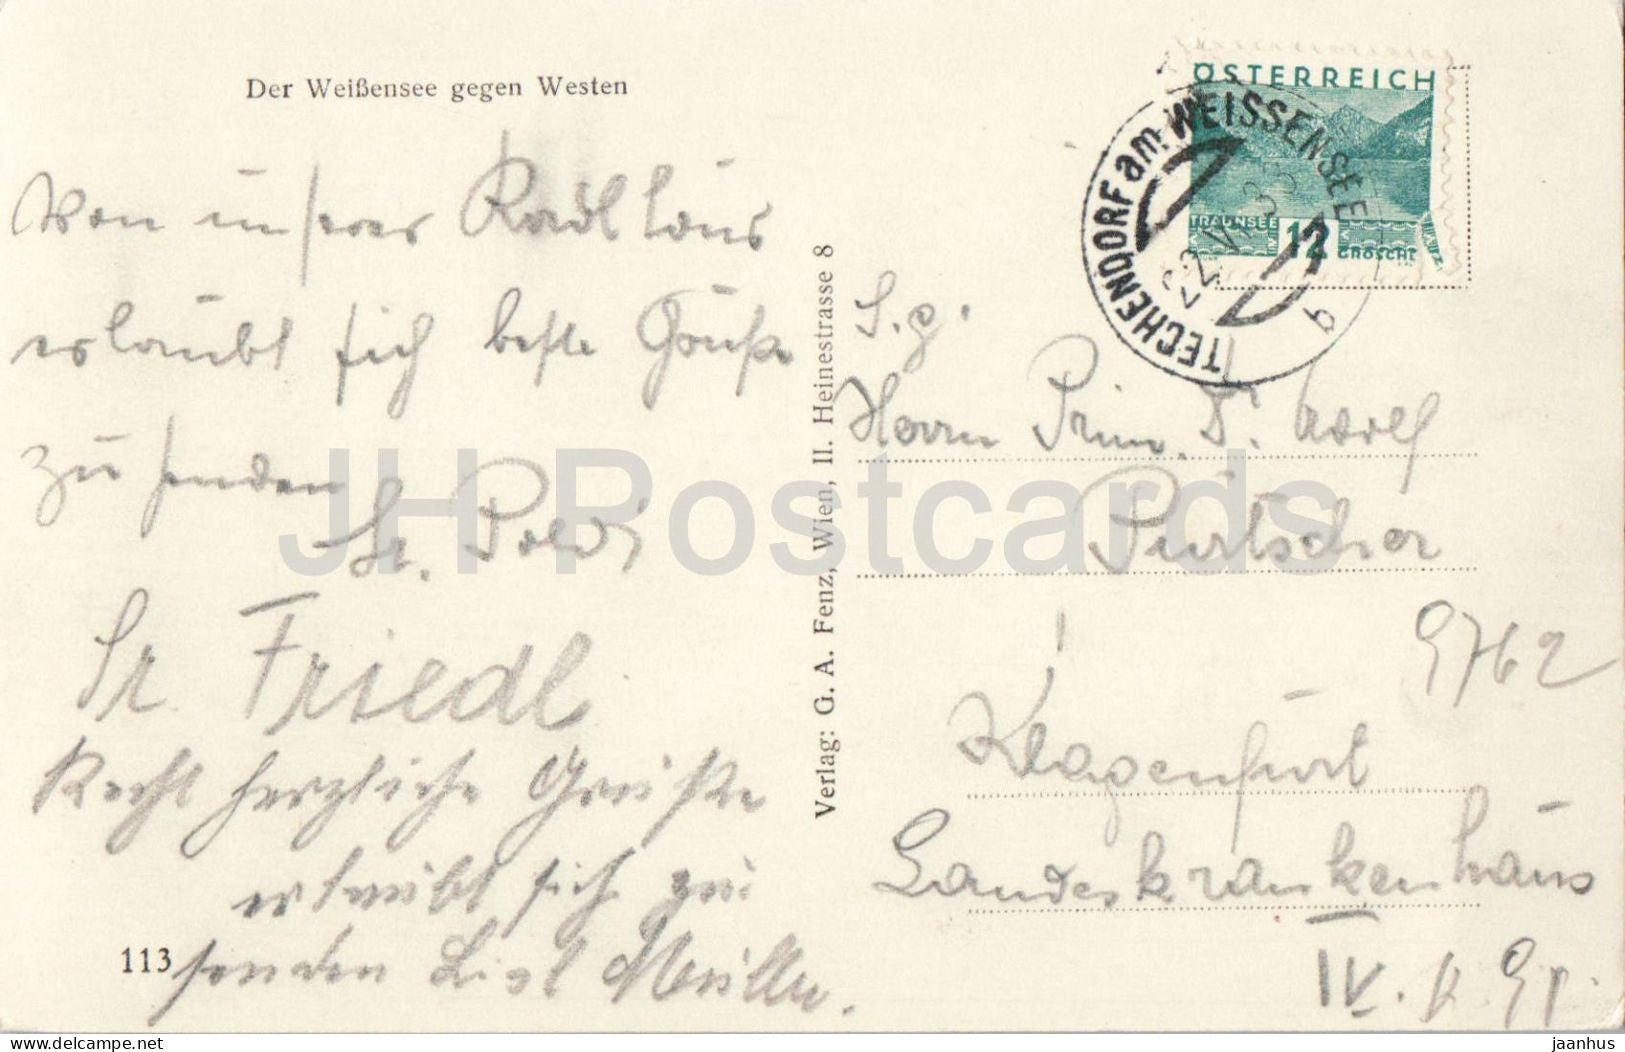 Der Weißensee gegen Westen
Von unserer Radltour
erlaubt sich beste Grüße
zu senden
Sr. Poldi
Sr. Friedl
Recht herzliche Grüße
erlaubt sich zu
senden Liesl Müller.
113
Verlag: G. A. Fenz, Wien, II. Heinestrasse 8
ÖSTERREICH
TRAUNSEE 12 GROSCHE
TECHENDORF am WEISSENSEE
22 V 33
b
S. g.
Herrn Prim. Dr. Adolf
Purtscher
9762
Klagenfurt
Landeskrankenhaus
IV.
JH Postcards
delcampe.net
jaanhus